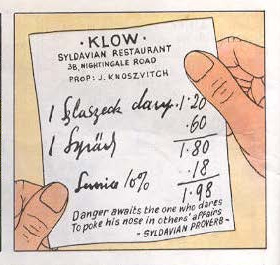 · KLOW ·
SYLDAVIAN RESTAURANT
3B, NIGHTINGALE ROAD
PROP: J. KNOSZVITCH
1 Szlaszeck 1·20
1 ·60
1·80
Service 10% ··18
1·98
Danger awaits the one who dares
To poke his nose in others' affairs
- SYLDAVIAN PROVERB -